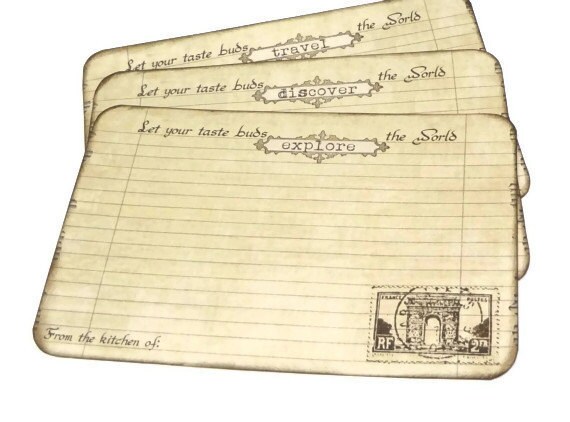 Let your taste buds travel the Sorld
Let your taste buds discover the Sorld
Let your taste buds explore the Sorld
FRANCE POSTES
RF 2F
From the kitchen of: